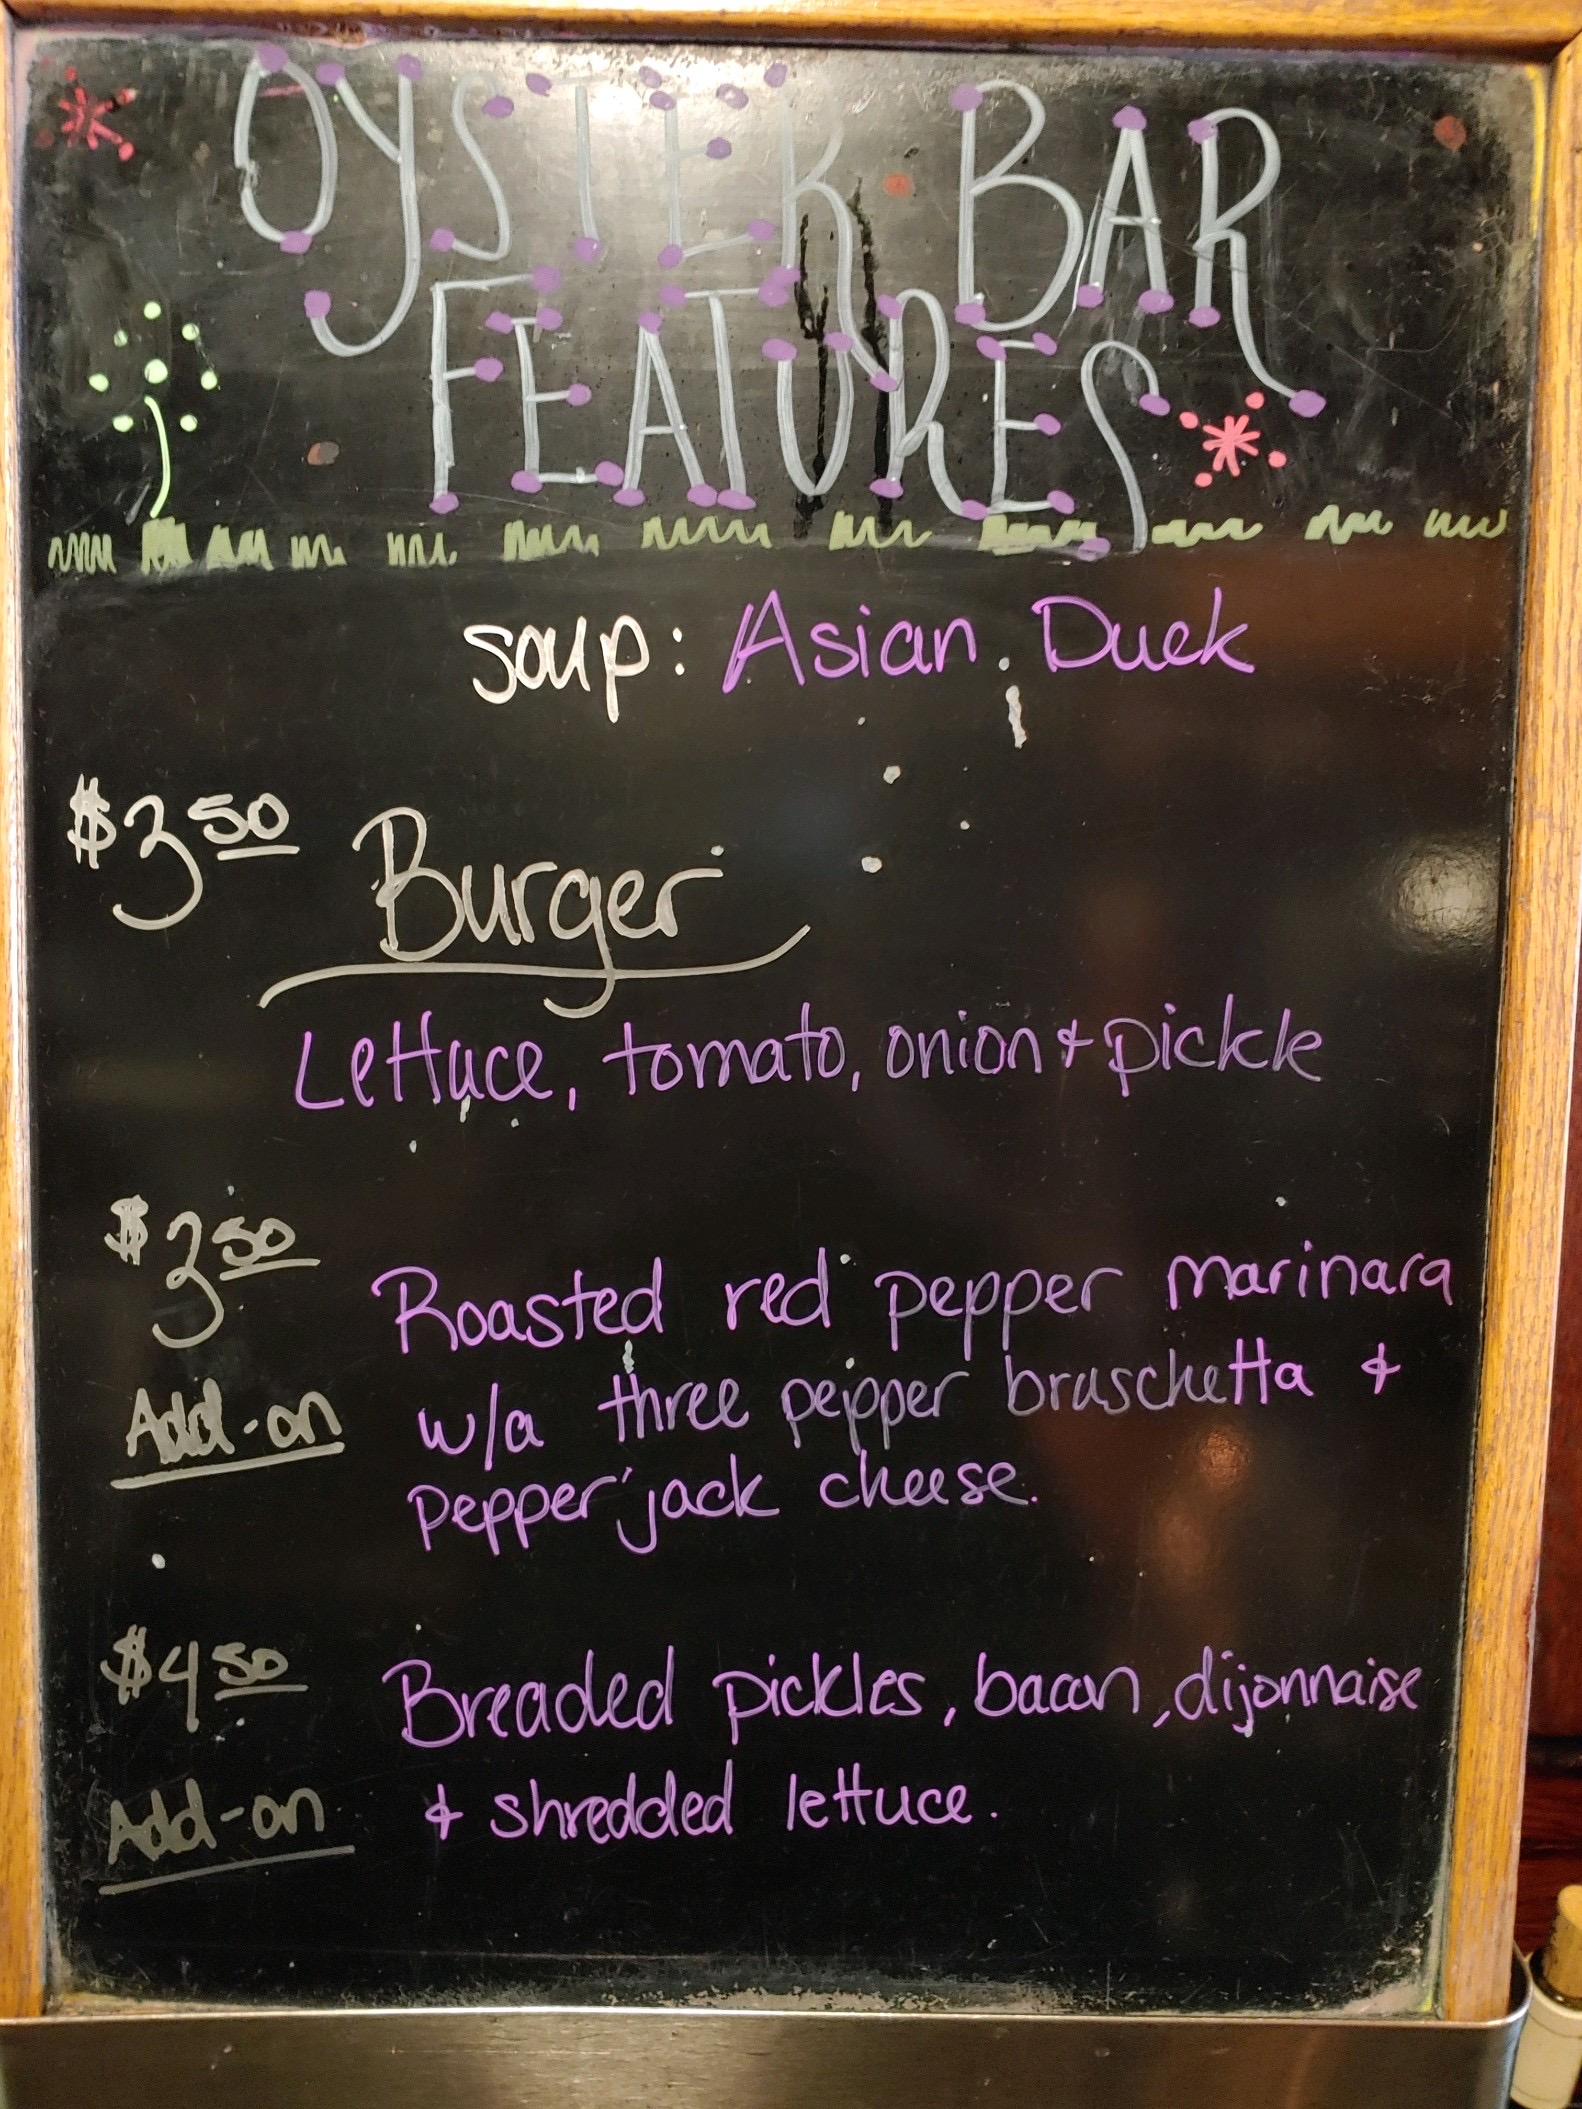 OYSTER BAR
FEATURES
soup: Asian Duck
$3 50 Burger
Lettuce, tomato, onion & pickle
$3 50
Add-on
Roasted red pepper marinara
w/a three pepper bruschetta &
pepper jack cheese.
$4 50
Add-on
Breaded pickles, bacon, dijonnaise
& shredded lettuce.